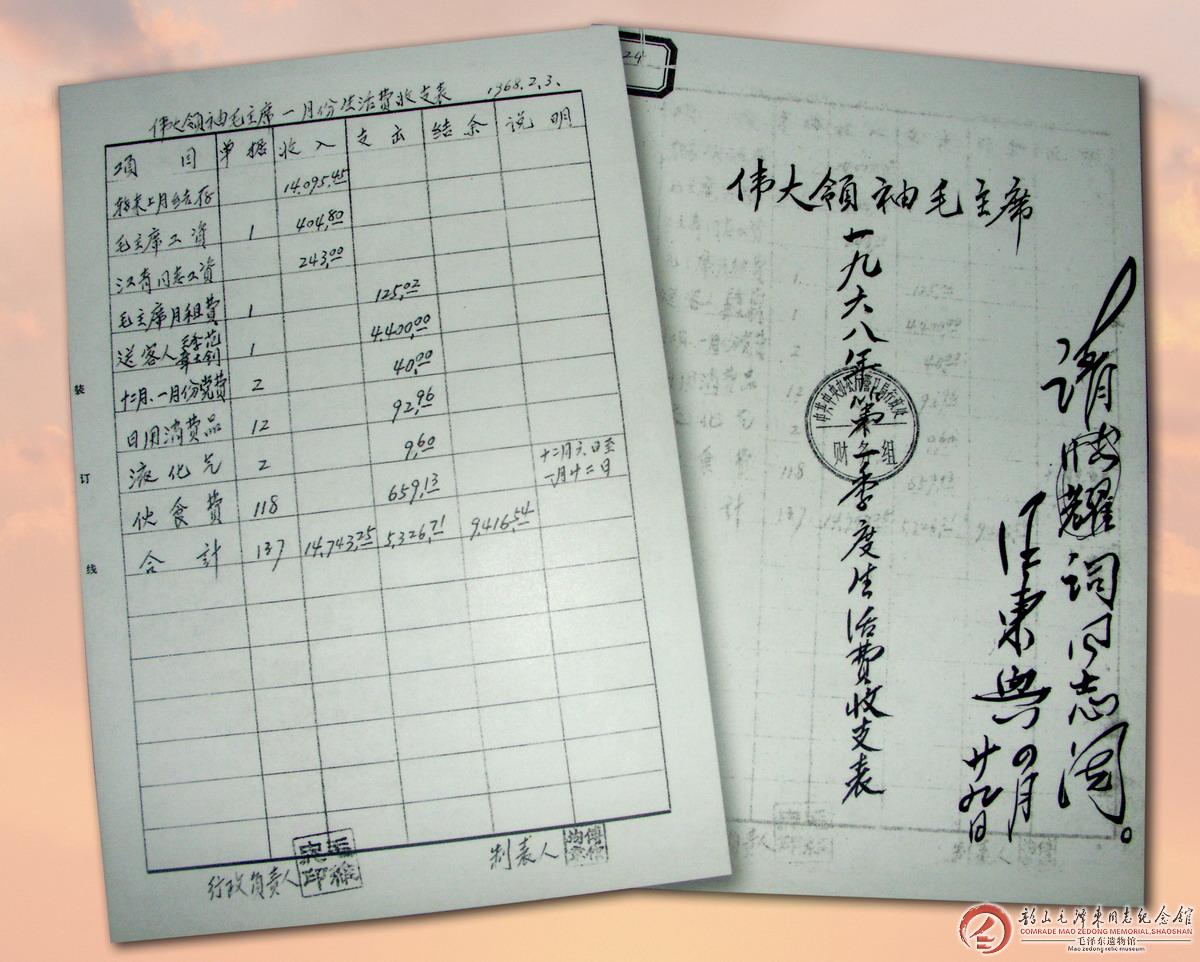 伟大领袖毛主席一月份生活费收支表 1968.2.3.
项目 单据 收入 支出 结余 说明
转来上月结存 14,095.45
毛主席工资 1 404.80
江青同志工资 243.00
毛主席月租费 1 125.02
送客人王季范 章士钊 1 4,400.00
十二月、一月份党费 2 40.00
日用消费品 12 92.96
液化气 2 9.60 十二月六日至
一月十二日
伙食费 118 659.13
合计 137 14,743.25 5,326.71 9,416.54
装
订
线
行政负责人
制表人
24
伟大领袖毛主席
一九六八年第一季度生活费收支表
财务组
请耀词同志阅。
汪东兴
四月
廿九日
韶山毛泽东同志纪念馆
COMRADE MAO ZEDONG MEMORIAL,SHAOSHAN
毛泽东遗物馆
Mao zedong relic museum